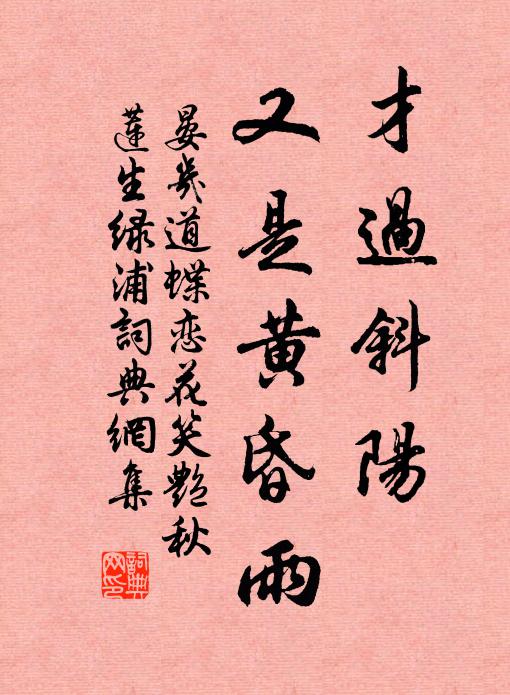 才過斜陽
又是黃昏雨
晏幾道蝶恋花笑艷秋
蓮生绿浦詞典網集
詞典
网印